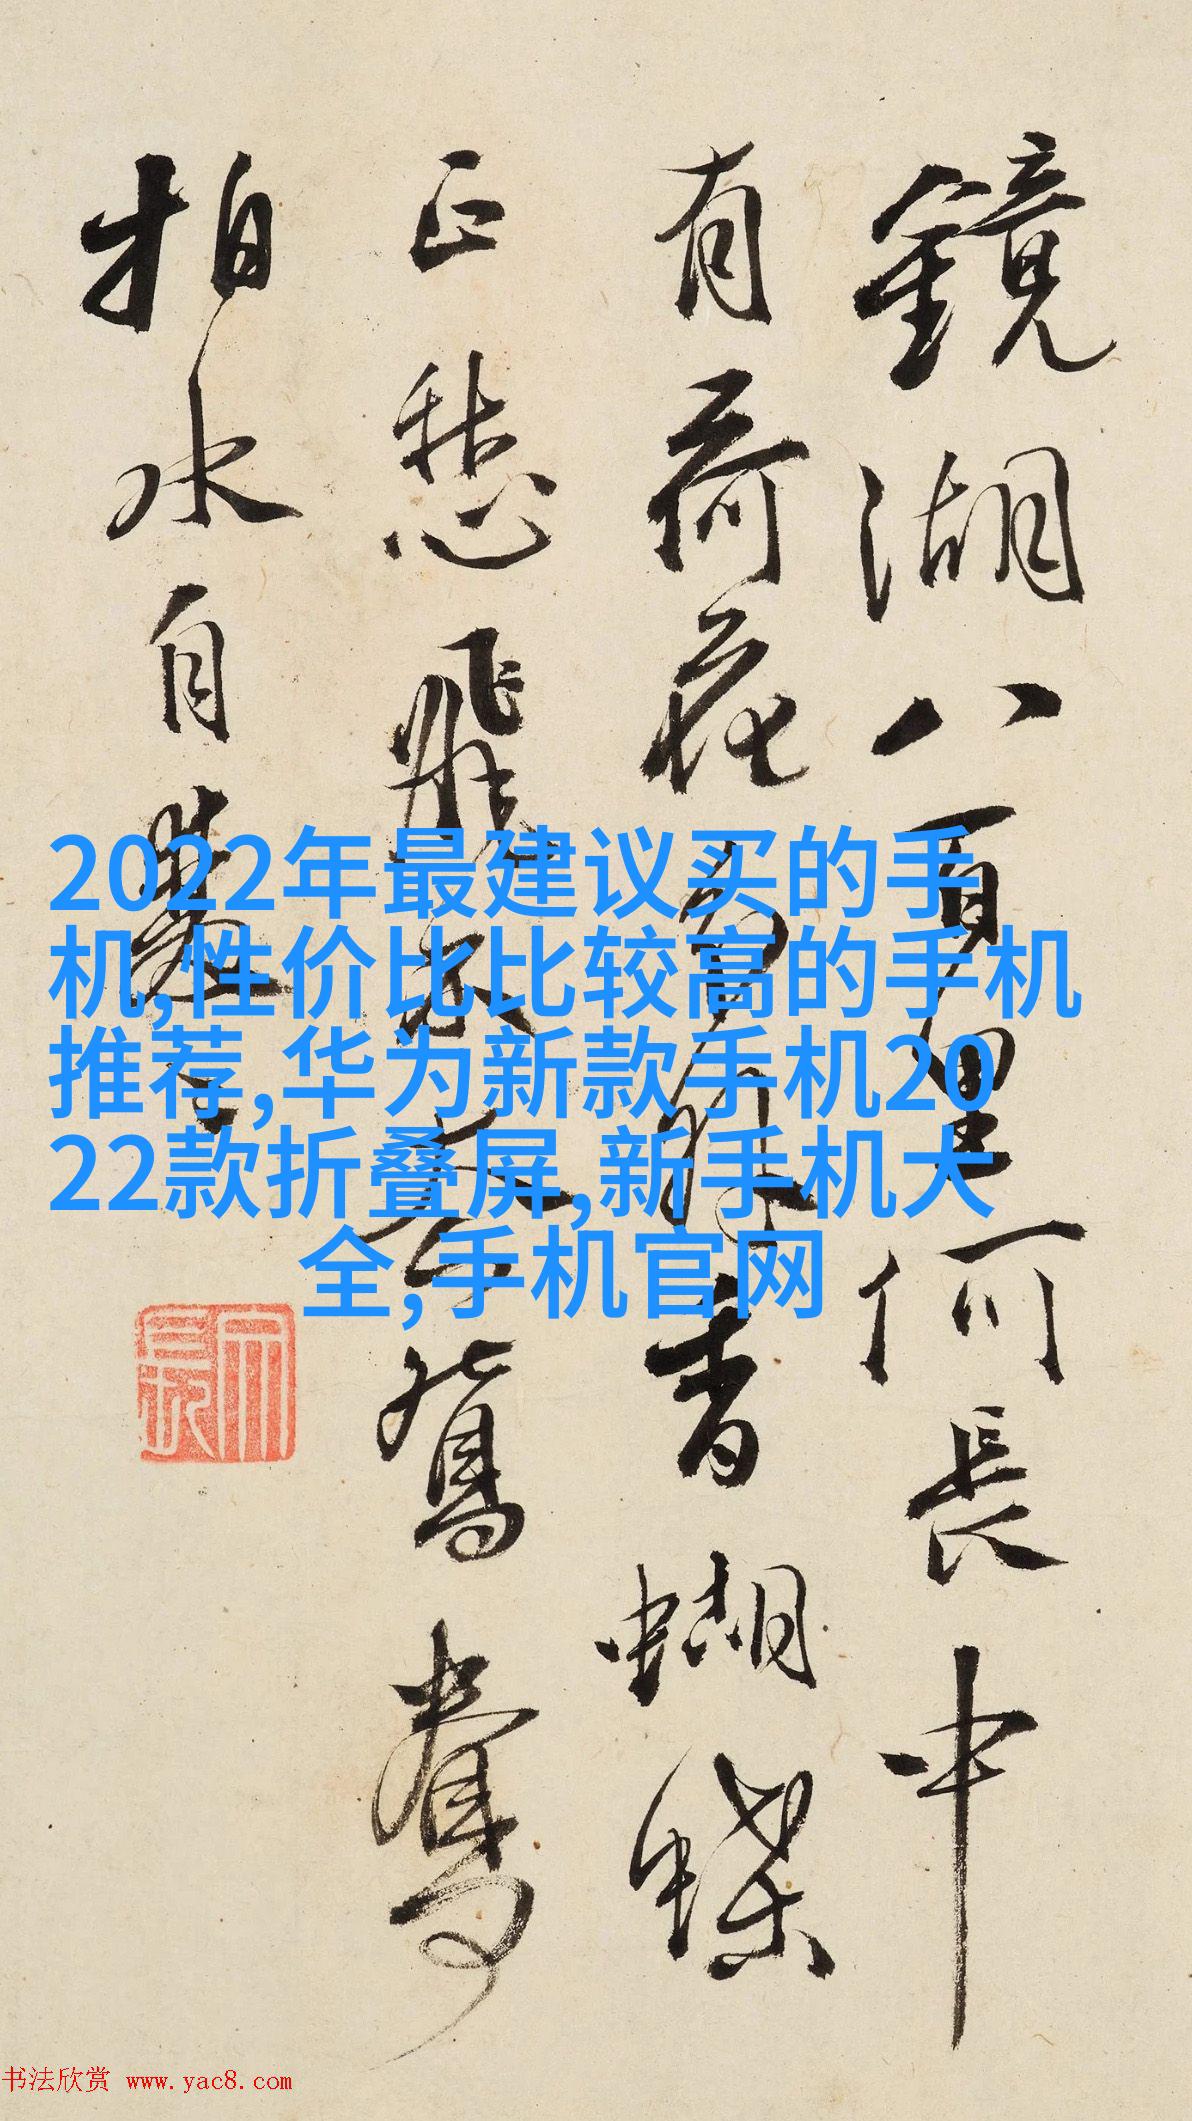 鏡湖八百里何長中
有荷花
香蝴蝶
正愁飛
鴛鴦
拍水自
2022年最建议买的手
机,性价比比较高的手机
推荐,华为新款手机20
22款折叠屏,新手机大
全,手机官网
书法欣赏 www.yac8.com